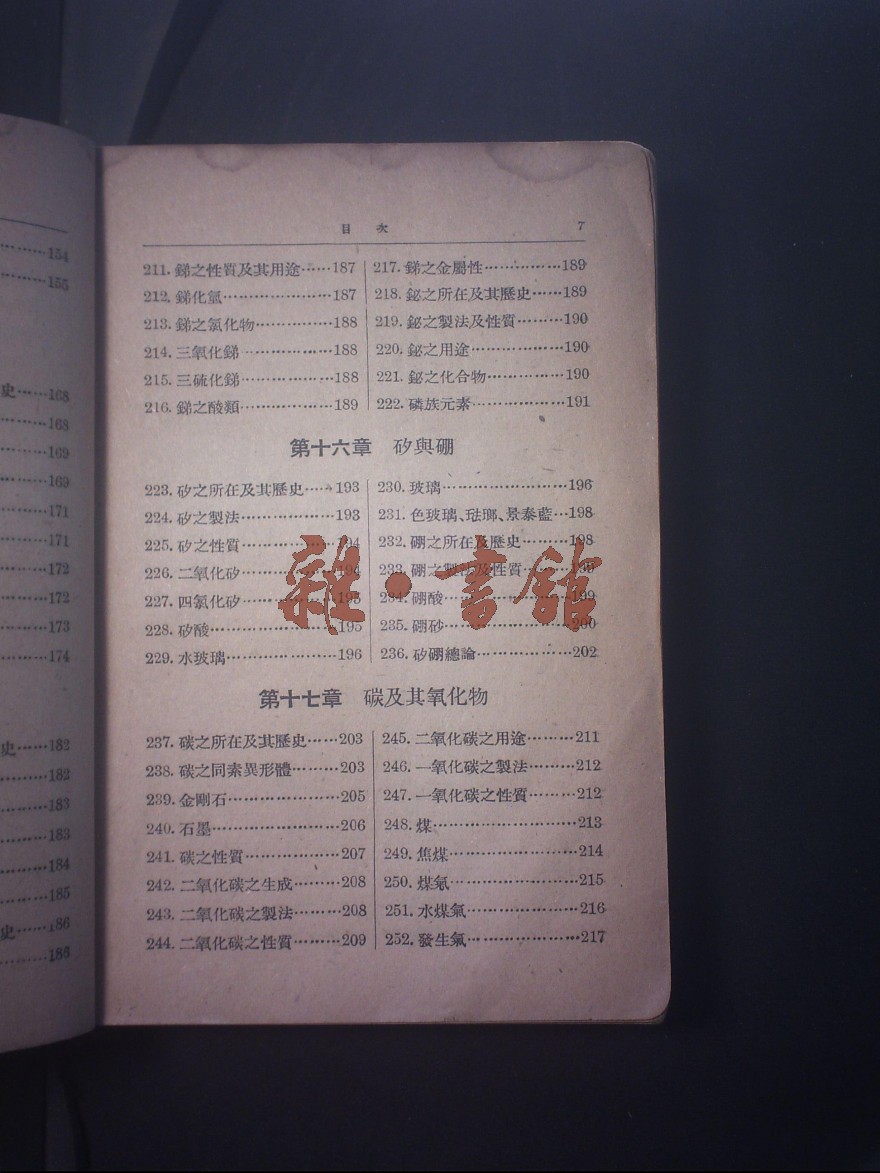 154
155
史……168
168
169
169
171
171
172
172
173
174
史……182
182
183
183
184
185
史……186
186
目 次 7
211. 銻之性質及其用途……187
212. 銻化氫…………………187
213. 銻之氯化物……………188
214. 三氧化銻………………188
215. 三硫化銻………………188
216. 銻之酸類………………189
217. 銻之金屬性……………189
218. 鉍之所在及其歷史……189
219. 鉍之製法及性質………190
220. 鉍之用途………………190
221. 鉍之化合物……………190
222. 磷族元素………………191
第十六章 矽與硼
223. 矽之所在及其歷史……193
224. 矽之製法………………193
225. 矽之性質………………194
226. 二氧化矽………………194
227. 四氯化矽………………195
228. 矽酸……………………195
229. 水玻璃…………………196
230. 玻璃……………………196
231. 色玻璃、琺瑯、景泰藍…198
232. 硼之所在及歷史………198
233. 硼之製法及性質………199
234. 硼酸……………………199
235. 硼砂……………………200
236. 矽硼總論………………202
雜·書館
第十七章 碳及其氧化物
237. 碳之所在及其歷史……203
238. 碳之同素異形體………203
239. 金剛石…………………205
240. 石墨……………………206
241. 碳之性質………………207
242. 二氧化碳之生成………208
243. 二氧化碳之製法………208
244. 二氧化碳之性質………209
245. 二氧化碳之用途………211
246. 一氧化碳之製法………212
247. 一氧化碳之性質………212
248. 煤………………………213
249. 焦煤……………………214
250. 煤氣……………………215
251. 水煤氣…………………216
252. 發生氣…………………217